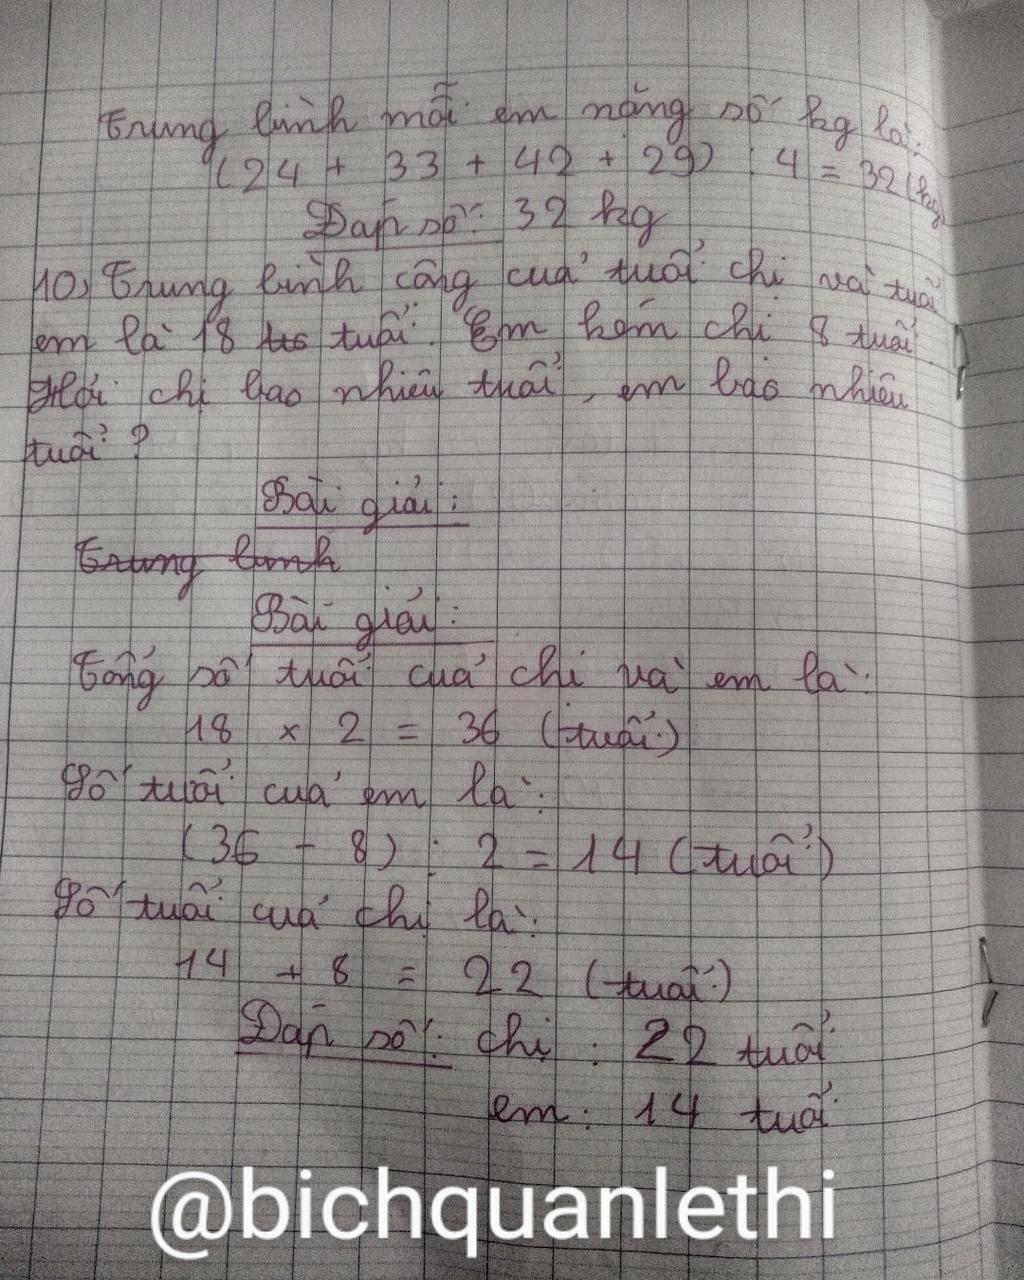 Trung bình mỗi em nặng số kg là:
(24 + 33 + 42 + 29) : 4 = 32 (kg)
Đáp số: 32 kg
10, Trung bình cộng của tuổi chị và tuổi
em là 18 tuổi. Em kém chị 8 tuổi.
Hỏi chị bao nhiêu tuổi, em bao nhiêu
tuổi?
Bài giải:
Trung bình
Bài giải:
Tổng số tuổi của chị và em là:
18 x 2 = 36 (tuổi)
Số tuổi của em là:
(36 - 8) : 2 = 14 (tuổi)
Số tuổi của chị là:
14 + 8 = 22 (tuổi)
Đáp số: chị : 22 tuổi
em: 14 tuổi
@bichquanlethi